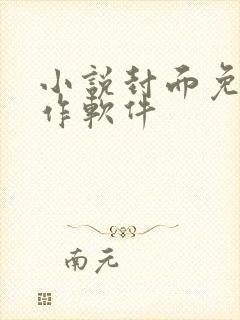 小說封面免
作軟件
南元